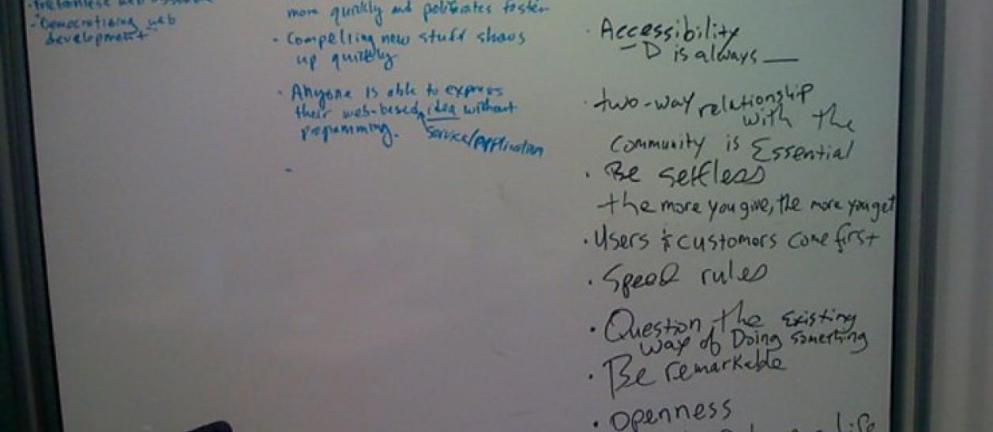 "Democratizing web
development"
more quickly and
faster
· Compelling new stuff shows
up quickly
· Anyone is able to express
their web-based idea without
programming. service/application
-
· Accessibility
- D is always __
· two-way relationship
with the
community is Essential
· Be selfless
the more you give, the more you get
· Users & customers come first
· Speed rules
· Question the Existing
way of Doing something
· Be remarkable
· Openness
life